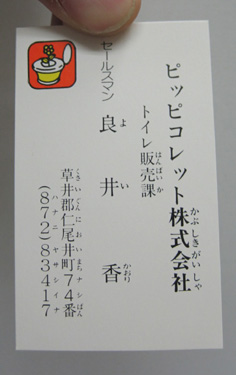 ピッピコレット株式会社
かぶしきがいしゃ
トイレ販売課
はんばいか
セールスマン
良井 香
よい かおり
草井郡仁尾井町74番
くさいぐんにおいまちナシばん
(872)83417
ハナニヤサシイナ